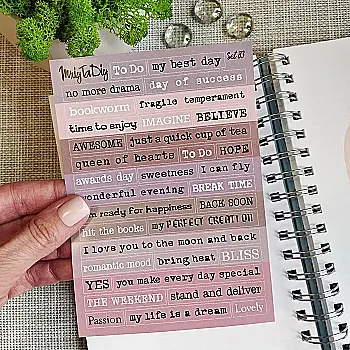 MrlyTaDiy To Do my best day Set 83
no more drama day of success
bookworm fragile temperament
time to enjoy IMAGINE BELIEVE
AWESOME just a quick cup of tea
queen of hearts To Do HOPE
awards day sweetness I can fly
wonderful evening BREAK TIME
am ready for happiness BACK SOON
hit the books my PERFECT CREATION
I love you to the moon and back
romantic mood bring heat BLISS
YES you make every day special
THE WEEKEND stand and deliver
Passion my life is a dream Lovely